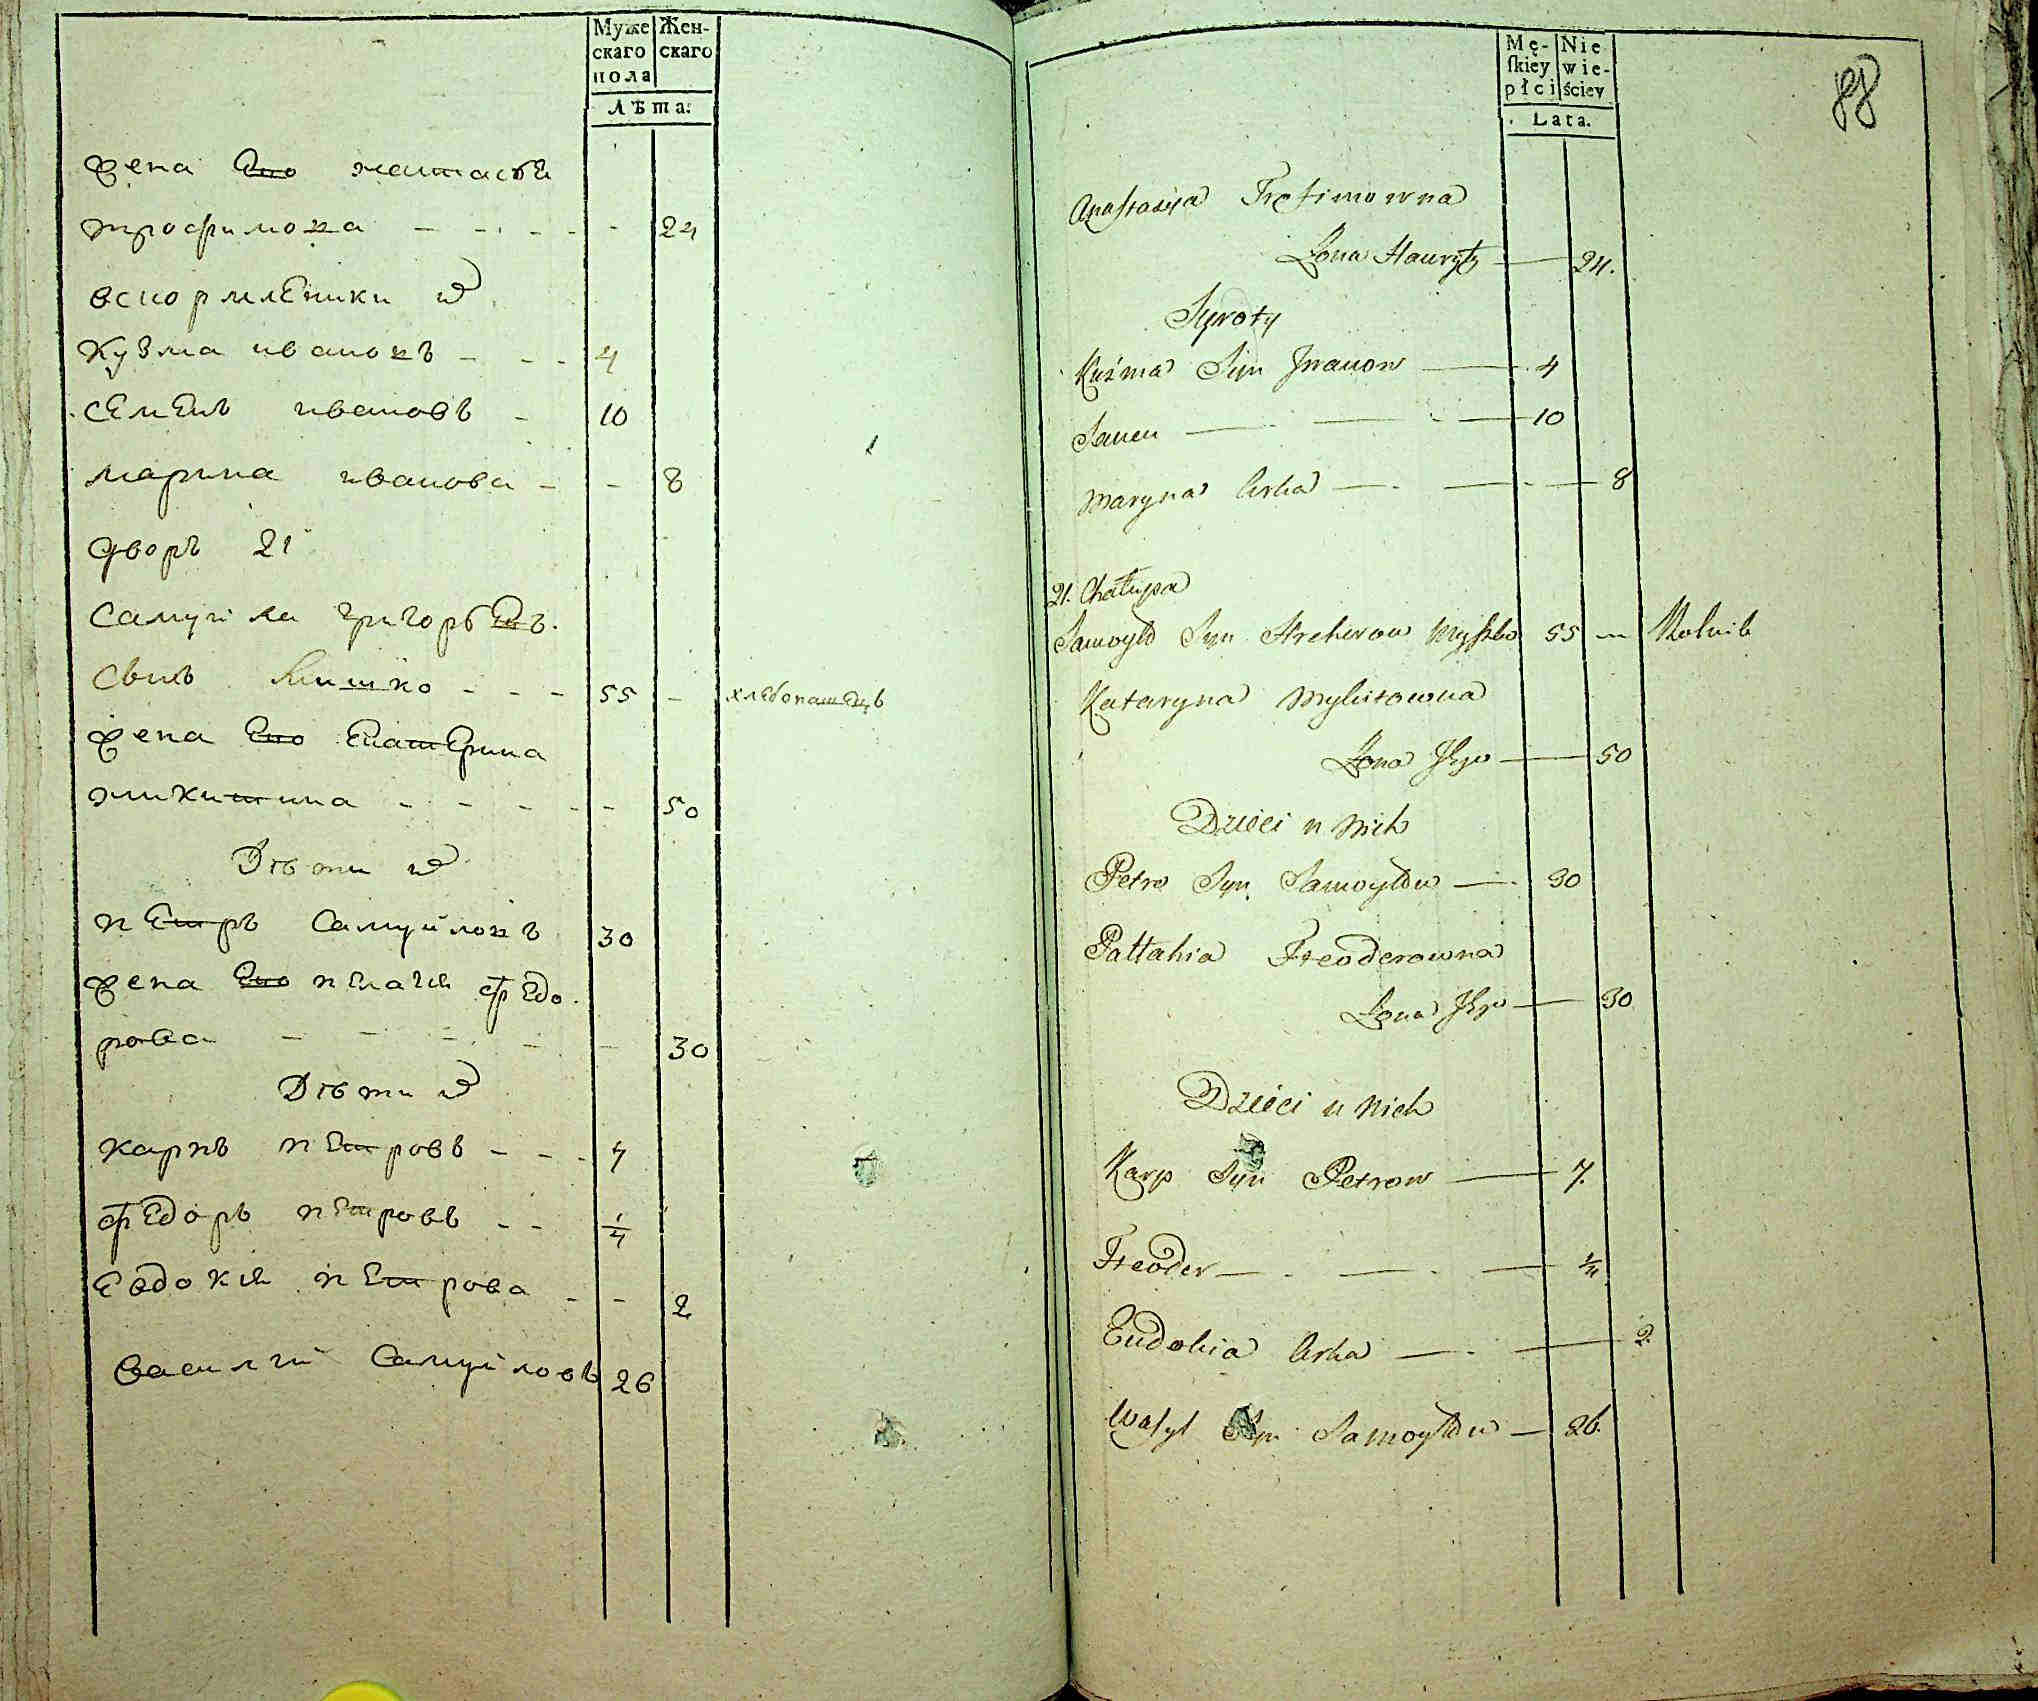 Муже
скаго
пола
Жен-
скаго
Лѣта:
жена Его настасья
трофимова - - - - - 24
вскормлЕники и
Кузма ивановъ - - - 4
сЕмЕнъ ивановъ - 10
марина иванова - - 8
дворъ 21
Самуйла григорьЕвъ
сынъ Мишко - - - 55 - хлѣбопашЕцъ
жена Его ЕкатЕрина
микитина - - - - - 50
Дѣти и
пЕтръ Самуйловъ 30
жена Его пЕлагия фЕдо-
рова - - - - - 30
Дѣти и
карпъ пЕтровъ - - - 7
фЕдоръ пЕтровъ - - 1/4
Евдокия пЕтрова - - 2
василий Самуйловъ 26
Mę-
skiey
płci
Nie
wie-
ściey
Lata.
88
Anastazya Trofimowna
Żona Hauryły — 24.
Syroty
Kuźma Syn Jwanow — 4
— 10
Maryna Crka — 8
21. Chałupa
Samoyło Syn Myszko 55 — Rolnik
Kataryna Mykitowna
Żona Jego — 50
Dzieci u Nich
Petro Syn Samoyłow — 30
Pałtahia Fteoderowna
Żona Jego — 30
Dzieci u Nich
Karp Syn Petrow — 7.
Fteoder — 1/4
Eudokia Crka — 2.
Wasyl Syn Samoyłow — 26.